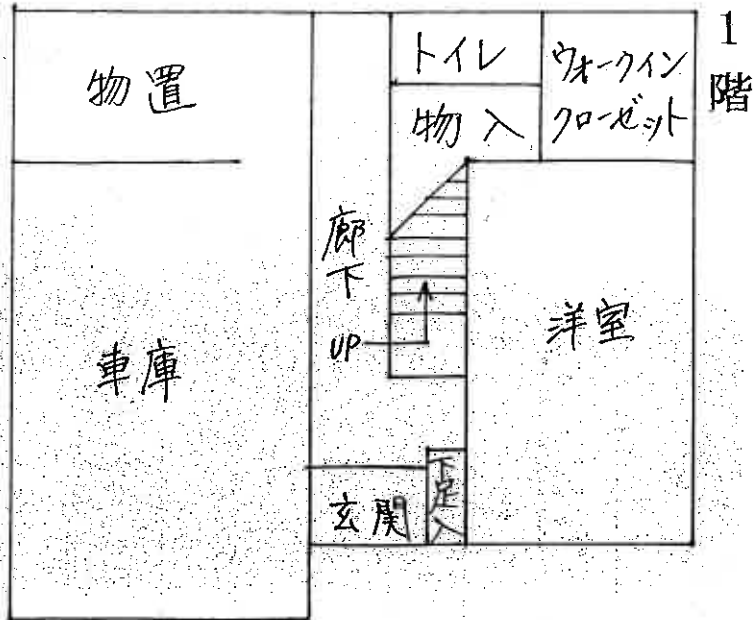 1階
物置
トイレ
ウォークイン
クローゼット
物入
廊下
UP
車庫
洋室
玄関
下足入